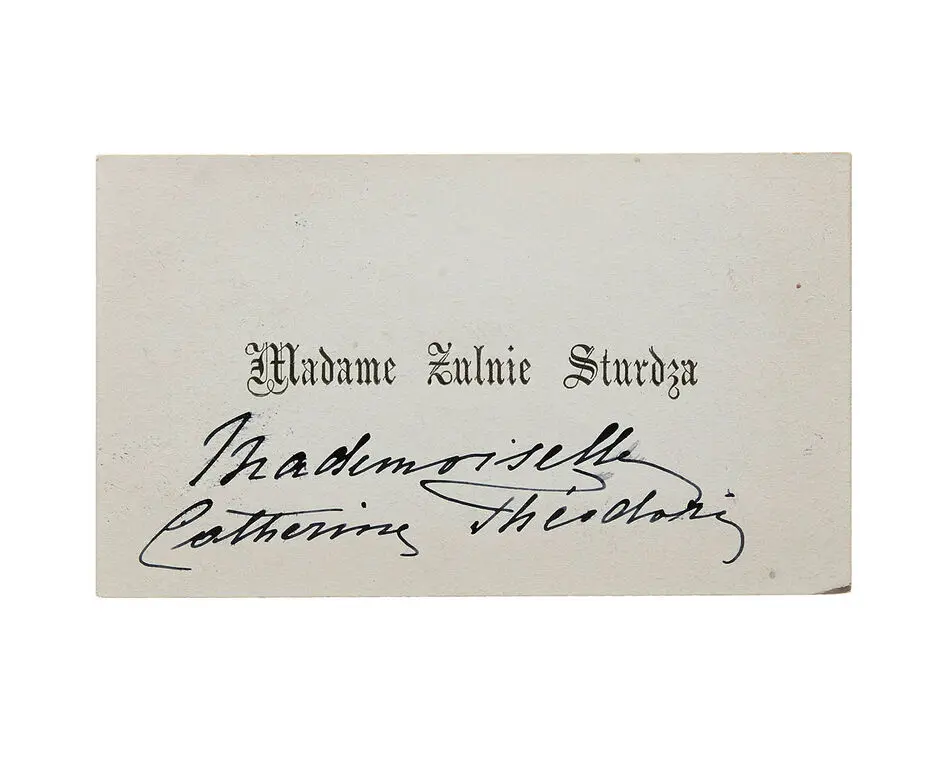 Madame Zulnie Sturdza
Mademoiselle
Catherine Théodori